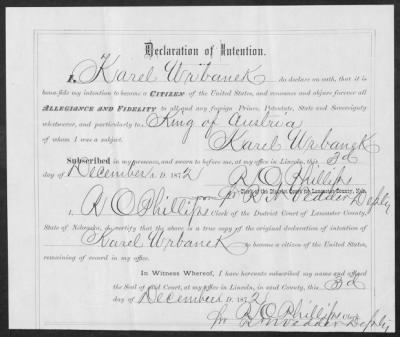 Declaration of Intention.
I, Karel Wrbanek do declare on oath, that it is
bona-fide my intention to become a CITIZEN of the United States, and renounce and abjure forever all
ALLEGIANCE AND FIDELITY to all and any foreign Prince, Potentate, State and Sovereignty
whatsoever, and particularly to King of Austria
of whom I was a subject.
Karel Wrbanek
Subscribed in my presence, and sworn to before me, at my office in Lincoln, this 3d
day of December A. D. 1872
R O Phillips
Clerk of the District Court for Lancaster County, Neb.
pr R N Vedder Deputy
I, R O Phillips Clerk of the District Court of Lancaster County,
State of Nebraska, do certify that the above is a true copy of the original declaration of intention of
Karel Wrbanek to become a citizen of the United States,
remaining of record in my office.
In Witness Whereof, I have hereunto subscribed my name and affixed
the Seal of said Court, at my office in Lincoln, in said County, this 3d
day of December A. D. 1872
R O Phillips Clerk
pr R N Vedder Deputy